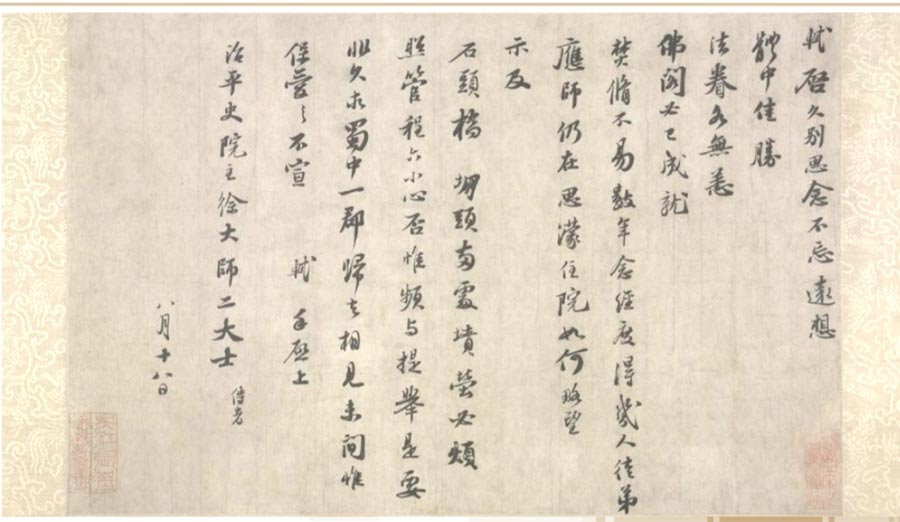 軾啓久別思念不忘遠想
體中佳勝
法眷各無恙
佛閣必已成就
焚脩不易數年念經度得幾人徒弟
應師仍在思濛住院如何略望
示及
石頭橋堋頭兩處墳塋必煩
照管程六小心否惟頻与提舉是要
非久求蜀中一郡歸去相見未間惟
保愛之不宣 軾手啟上
治平史院主徐大師二大士 侍者
八月十八日